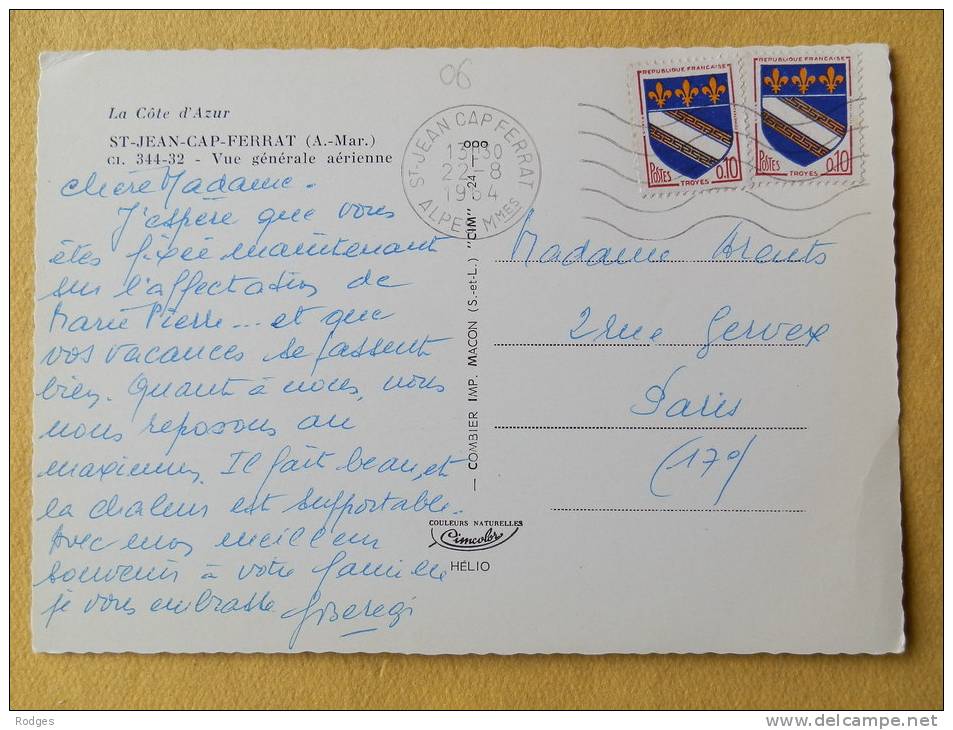 06
La Côte d'Azur
ST-JEAN-CAP-FERRAT (A.-Mar.)
CI. 344-32 - Vue générale aérienne
chère Madame.
J'espère que vous
êtes fixée maintenant
sur l'affectation de
Marie Pierre... et que
vos vacances se passent
bien. Quant à nous, nous
nous reposons au
maximum. Il fait beau, et
la chaleur est supportable.
Avec mon meilleur
souvenir à votre famille
je vous embrasse
ST JEAN CAP FERRAT
13H30
22-8
1964
ALPES Mmes
REPUBLIQUE FRANÇAISE
POSTES 0,10
TROYES
REPUBLIQUE FRANÇAISE
POSTES 0,10
TROYES
COMBIER IMP. MACON (S.-et-L.) "CIM"
24
COULEURS NATURELLES
Cimcolor
HÉLIO
Madame
2 rue Gervex
Paris
(17°)
Rodges
www.delcampe.net